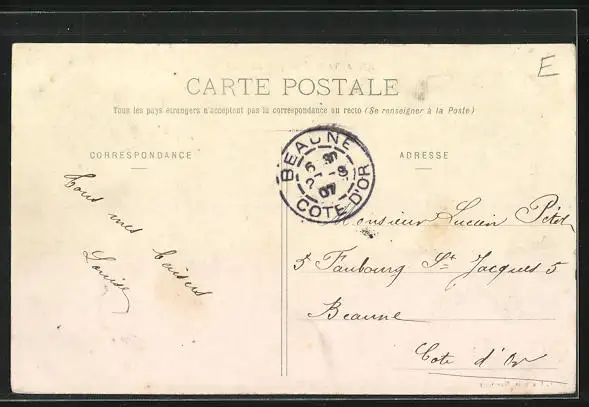 E
CARTE POSTALE
Tous les pays étrangers n'acceptent pas la correspondance au recto (Se renseigner à la Poste)
CORRESPONDANCE
ADRESSE
BEAUNE
07
COTE D'OR
Tous mes baisers
Louise
Monsieur Lucien
5 Faubourg St Jacques 5
Beaune
Cote d'Or